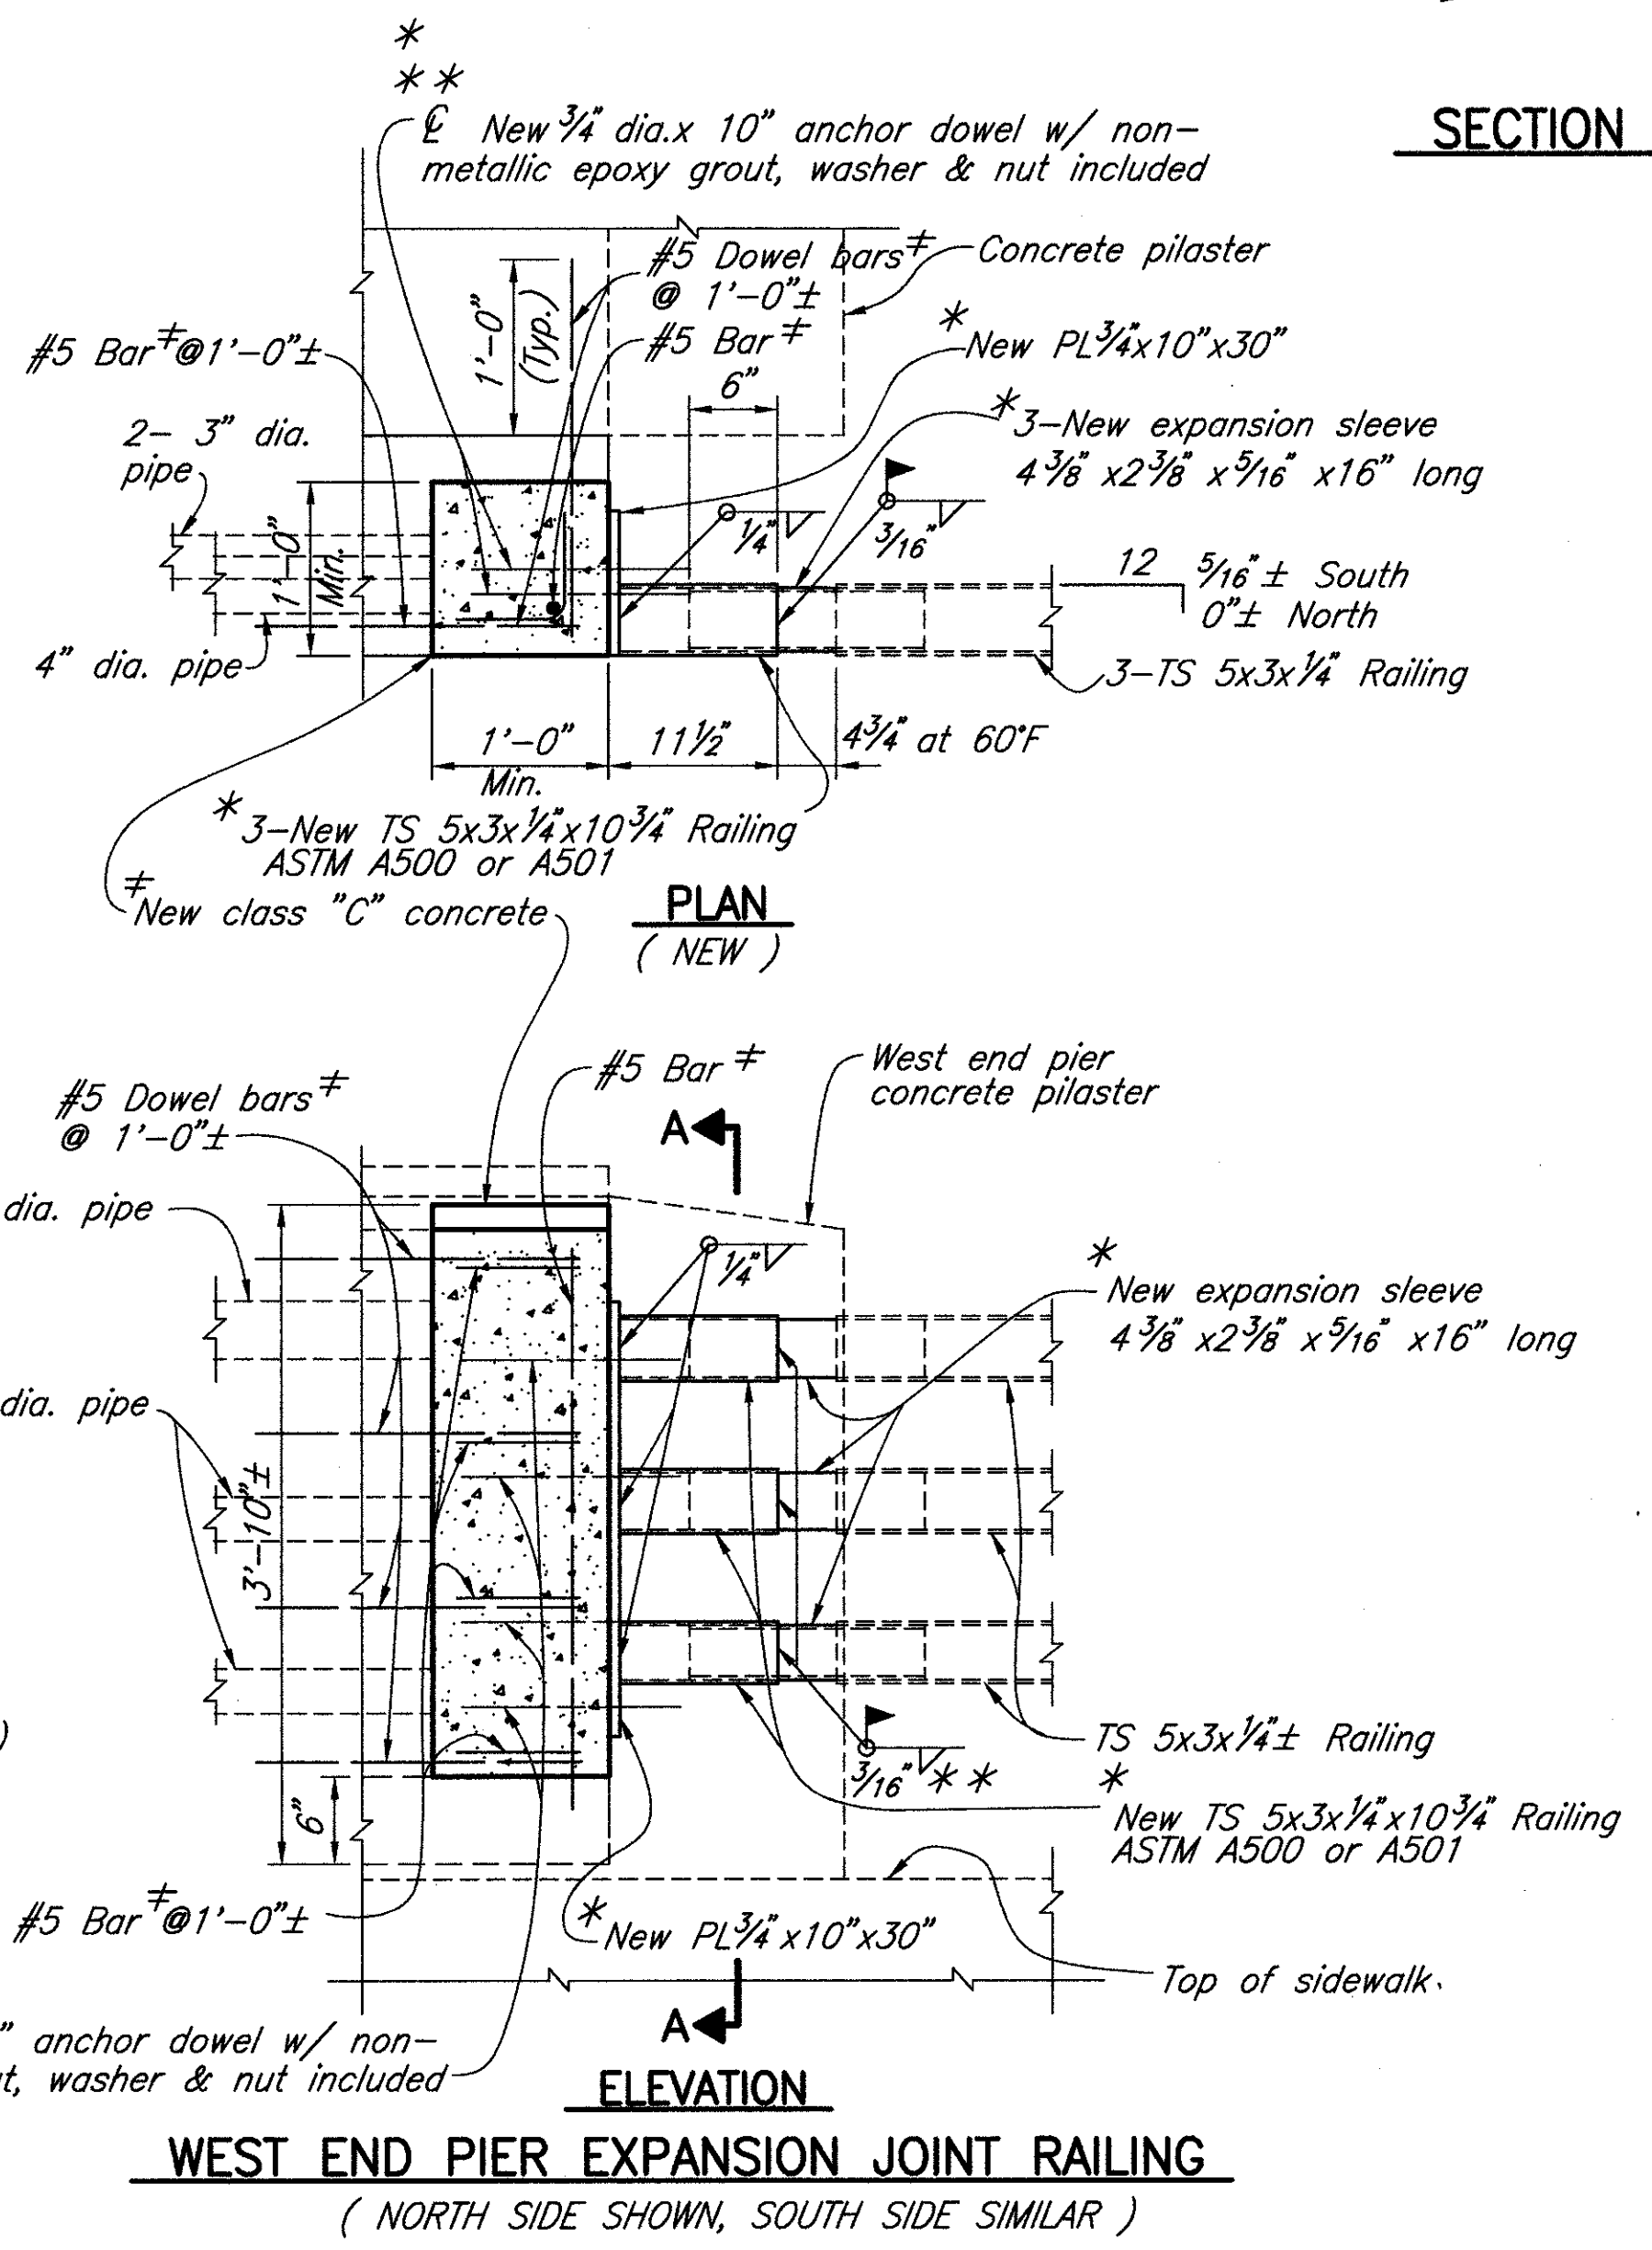 *
* *
℄ New 3/4" dia.x 10" anchor dowel w/ non-
metallic epoxy grout, washer & nut included
SECTION
#5 Dowel bars ≠
@ 1'-0"±
Concrete pilaster
1'-0"
(Typ.)
#5 Bar ≠@1'-0"±
#5 Bar ≠
*
New PL3/4"x10"x30"
6"
2- 3" dia.
pipe
*
3-New expansion sleeve
4 3/8" x2 3/8" x 5/16" x16" long
1'-0"
Min.
1/4"
3/16"
12
5/16"± South
0"± North
4" dia. pipe
3-TS 5x3x1/4" Railing
1'-0"
Min.
11 1/2"
4 3/4" at 60°F
*
3-New TS 5x3x1/4"x10 3/4" Railing
ASTM A500 or A501
≠
New class "C" concrete
PLAN
( NEW )
#5 Dowel bars ≠
@ 1'-0"±
#5 Bar ≠
West end pier
concrete pilaster
A
dia. pipe
1/4"
*
New expansion sleeve
4 3/8" x2 3/8" x 5/16" x16" long
dia. pipe
3'-10"±
)
TS 5x3x1/4"± Railing
3/16" * *
*
New TS 5x3x1/4"x10 3/4" Railing
ASTM A500 or A501
6"
#5 Bar ≠@1'-0"±
*
New PL3/4"x10"x30"
Top of sidewalk.
A
" anchor dowel w/ non-
t, washer & nut included
ELEVATION
WEST END PIER EXPANSION JOINT RAILING
( NORTH SIDE SHOWN, SOUTH SIDE SIMILAR )